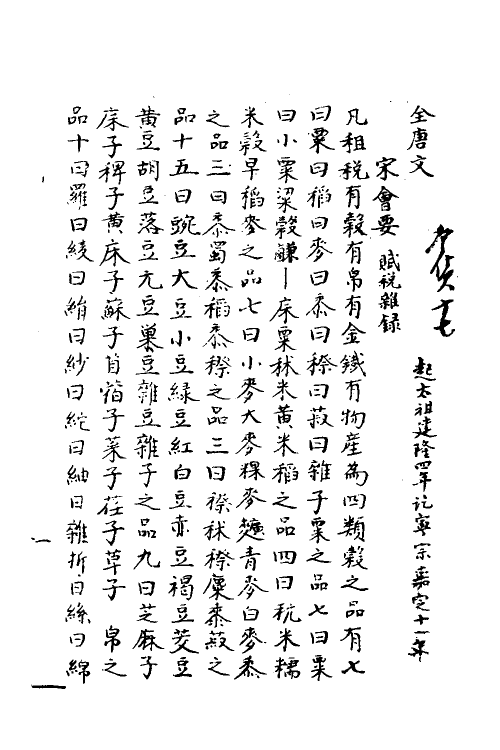 全唐文
食貨十七
宋會要 賦稅雜錄
起太祖建隆四年訖寧宗嘉定十一年
凡租稅有穀有帛有金鐵有物產為四類穀之品有七
曰粟曰稻曰麥曰黍曰穄曰菽曰雜子粟之品七曰粟
曰小粟粱穀䵖丨床粟秫米黃米稻之品四曰秔米糯
米穀旱稻麥之品七曰小麥大麥稞麥麵青麥白麥黍
之品三曰黍蜀黍稻黍穄之品三曰穄秫穄糜黍菽之
品十五曰豌豆大豆小豆綠豆紅白豆赤豆褐豆茭豆
黃豆胡豆落豆元豆巢豆雜豆雜子之品九曰芝麻子
床子稗子黃床子蘇子苜蓿子菜子荏子草子 帛之
品十曰羅曰綾曰絹曰紗曰絁曰紬曰雜折曰絲曰綿
一